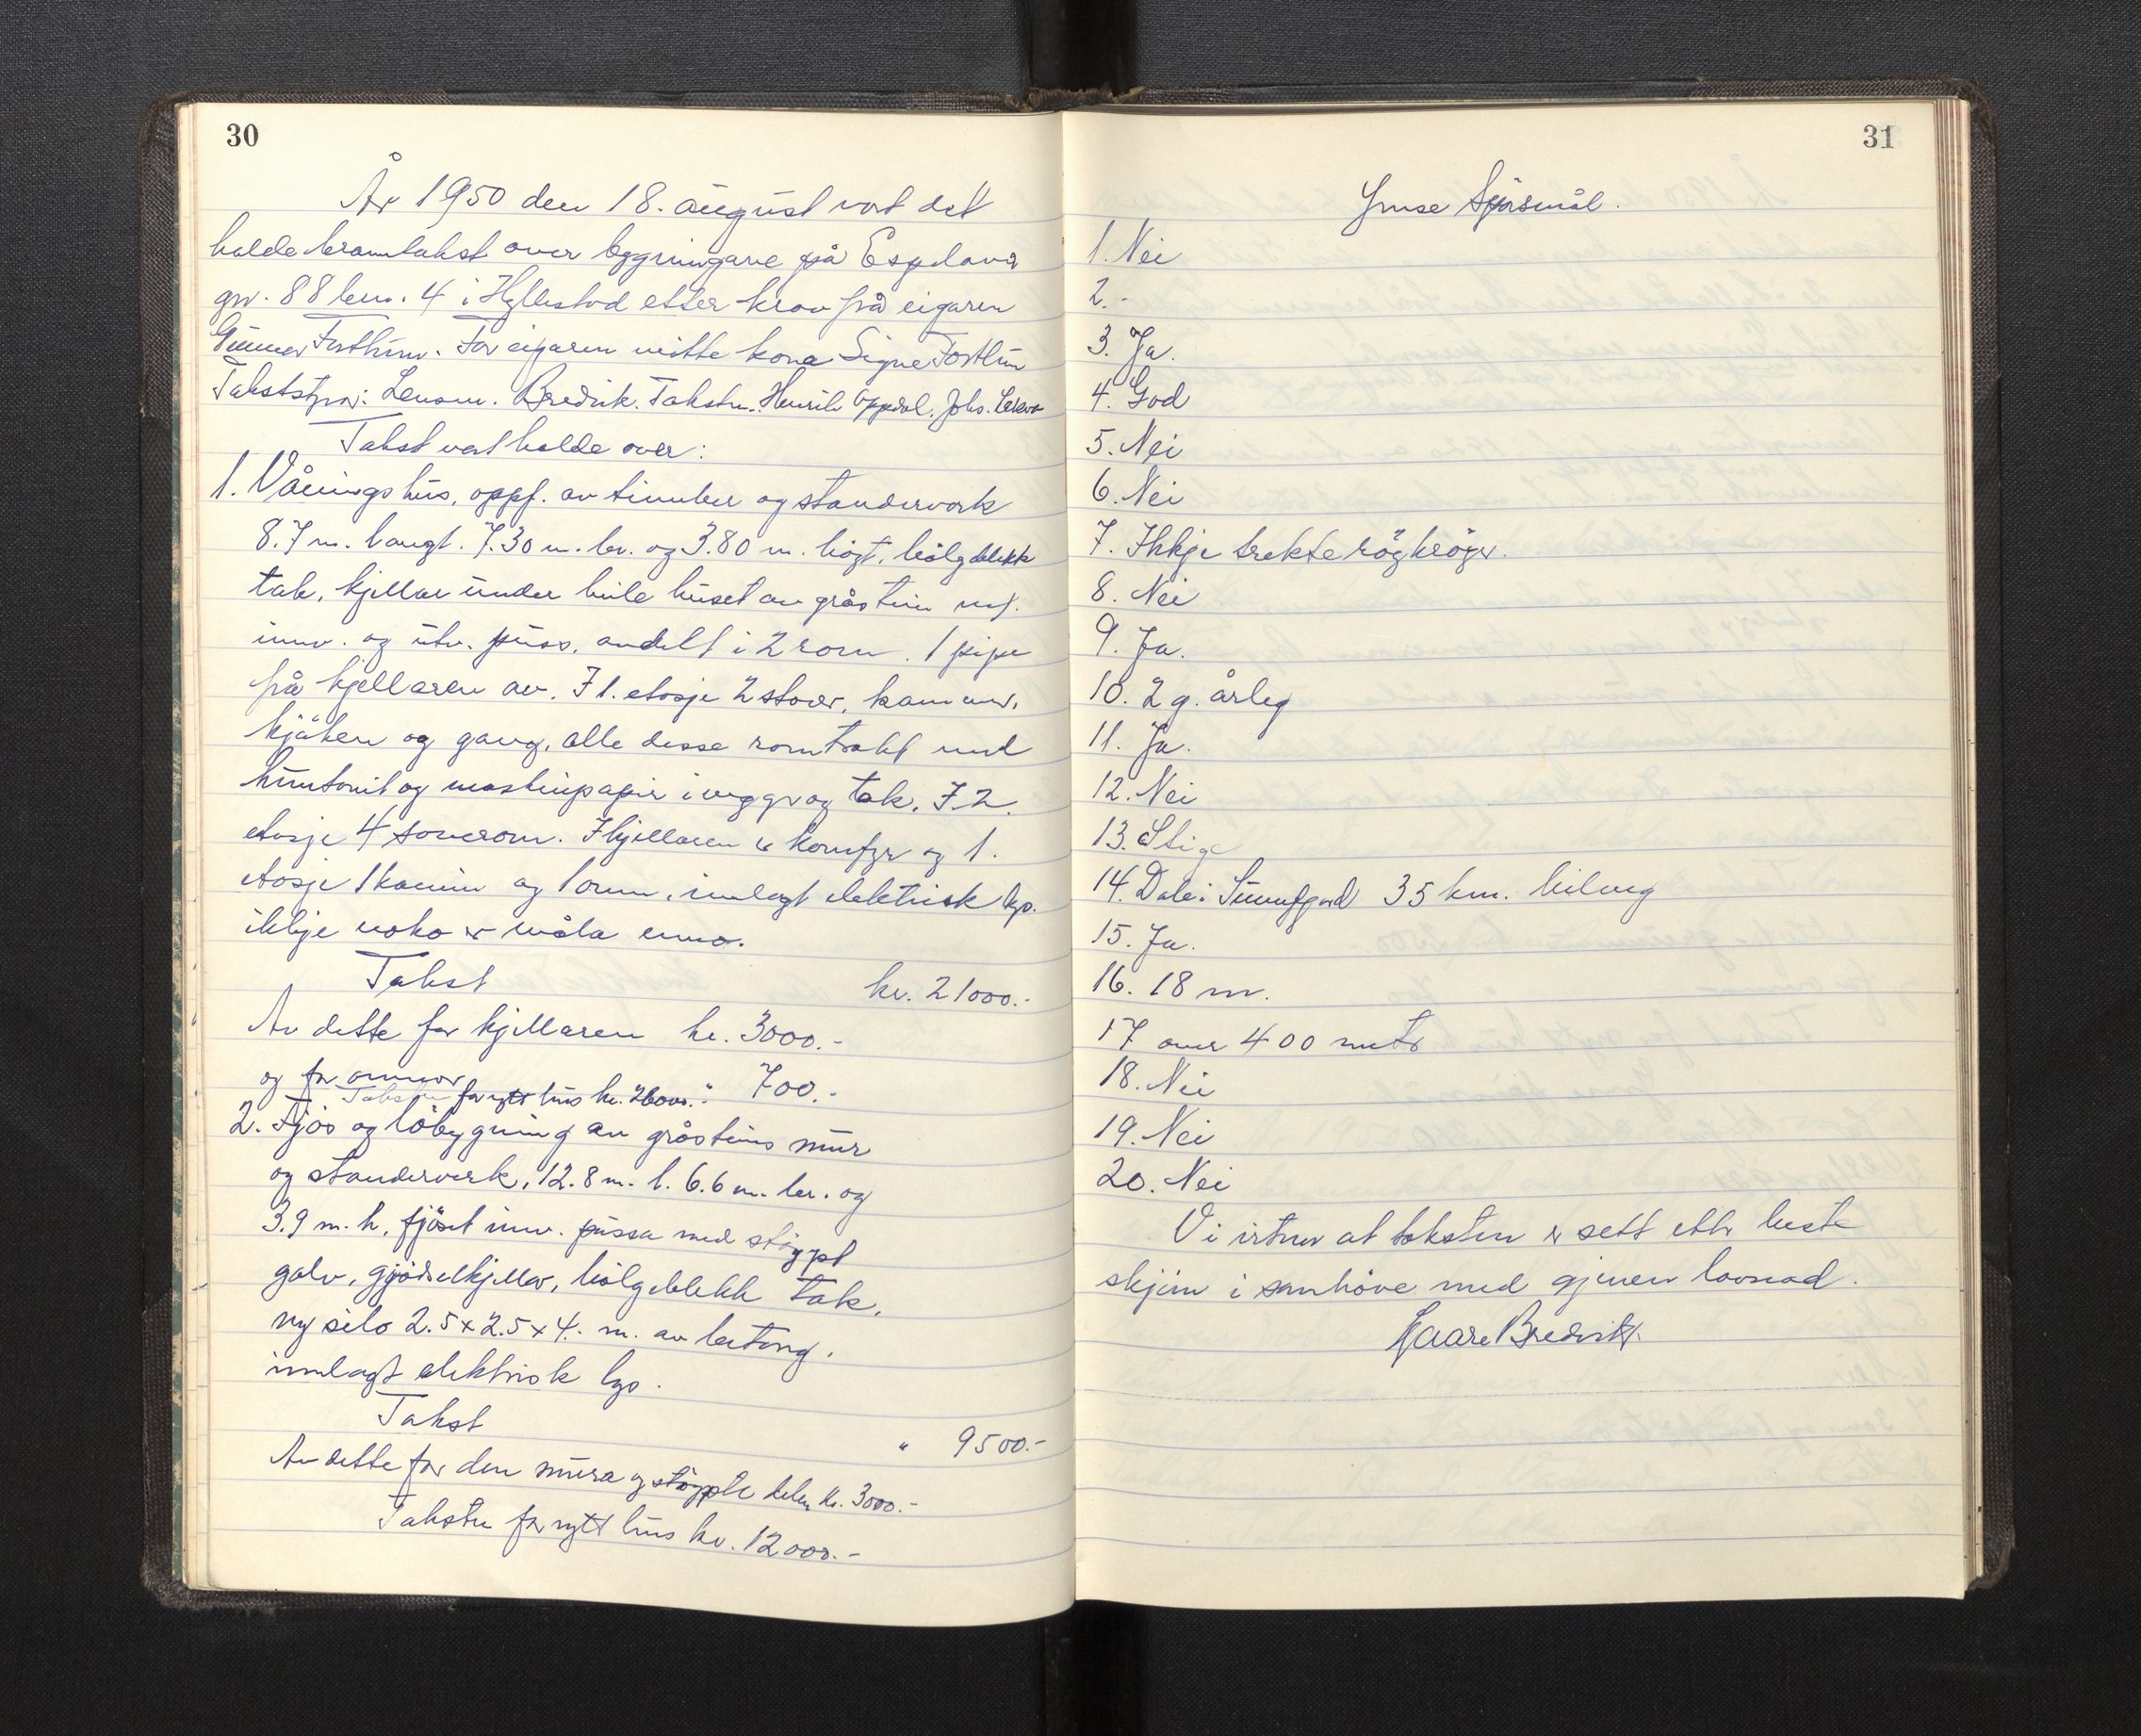 30
År 1950 den 18. august vart det
halde branntakst over bygningane på Espelann
gnr. 88 bnr. 4 i Hyllestad etter krav frå eigaren
Gunnar Forthun. For eigaren møtte kona Signe Forthun
Takststyrar: Lensm. Bredvik. Takstm. Henrik Oppdal. Johs. Leknes
Takst vart halde over:
1. Våningshus, oppf. av timber og standerverk
8.7 m. langt. 7.30 m. br. og 3.80 m. högt, bölgeblekk
tak, kjellar under heile huset av gråstein m.
innv. og utv. puss, avdelt i 2 rom. 1 pipe
frå kjellaren av. I 1. etasje 2 stover, kammer,
kjøken og gang, alle desse rom trekt med
huntonit og maskinpapir i vegger og tak. I 2.
etasje 4 soverom. I kjellaren er komfyr og 1.
etasje 1 kamin og 1 omn, innlagt elektrisk lys.
ikkje noko er måla enno.
Takst kr. 21000.-
Av dette for kjellaren kr. 3000.-
og for omnar " 700.-
Taksten for nytt hus kr. 26000.-
2. Fjös og löbygning av gråsteins mur
og standerverk, 12.8 m. l. 6.6 m. br. og
3.9 m. h. fjöset innv. pussa med stöypt
golv, gjödselkjellar, bölgeblekk tak,
ny silo 2.5 x 2.5 x 4. m. av betong.
innlagt elektrisk lys.
Takst " 9500.-
Av dette for den mura og stöypte delen kr. 3000.-
Taksten for nytt hus kr. 12000.-
31
Ymse Spörsmål.
1. Nei
2. -
3. Ja.
4. God
5. Nei
6. Nei
7. Ikkje trekte rögkröger.
8. Nei
9. Ja.
10. 2 g. årleg
11. Ja.
12. Nei
13. Stige
14. Dale i Sunnfjord 35 km. bilveg
15. Ja.
16. 18 m.
17 over 400 meter
18. Nei
19. Nei
20. Nei
Vi vitnar at taksten er sett etter beste
skjön i samhöve med gjeven lovnad.
Kaare Bredvik.